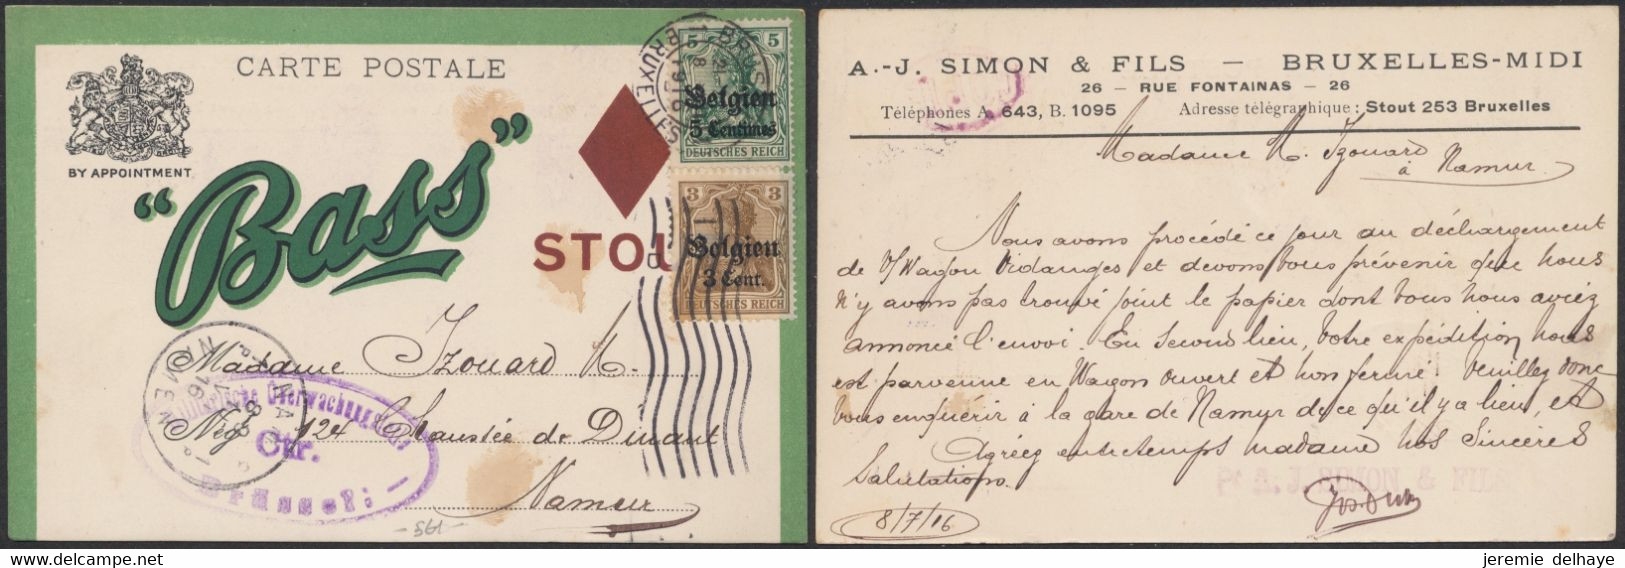 CARTE POSTALE
BY APPOINTMENT
"Bass"
STOU
5 5
Belgien
5 Centimes
DEUTSCHES REICH
3 3
Belgien
3 Cent.
DEUTSCHES REICH
BRUXELLES
Madame Izouard N.
Nég
124 Chaussée de Dinant
Namur
Militärische Überwachungsstelle
Ctr.
Brüssel
NAMUR
NAMEN
561
A.-J. SIMON & FILS — BRUXELLES-MIDI
26 — RUE FONTAINAS — 26
Téléphones A. 643, B. 1095 Adresse télégraphique : Stout 253 Bruxelles
Madame N. Izouard
à Namur
Nous avons procédé ce jour au déchargement
de v/ Wagon vidanges et devons vous prévenir que nous
n'y avons pas trouvé joint le papier dont vous nous aviez
annoncé l'envoi. En second lieu, votre expédition nous
est parvenue en Wagon ouvert et non fermé. Veuillez donc
vous enquérir à la gare de Namur de ce qu'il y a lieu, et
Agréez entretemps madame nos sincères
salutations.
Pr A. J. SIMON & FILS
8/7/16
jeremie delhaye